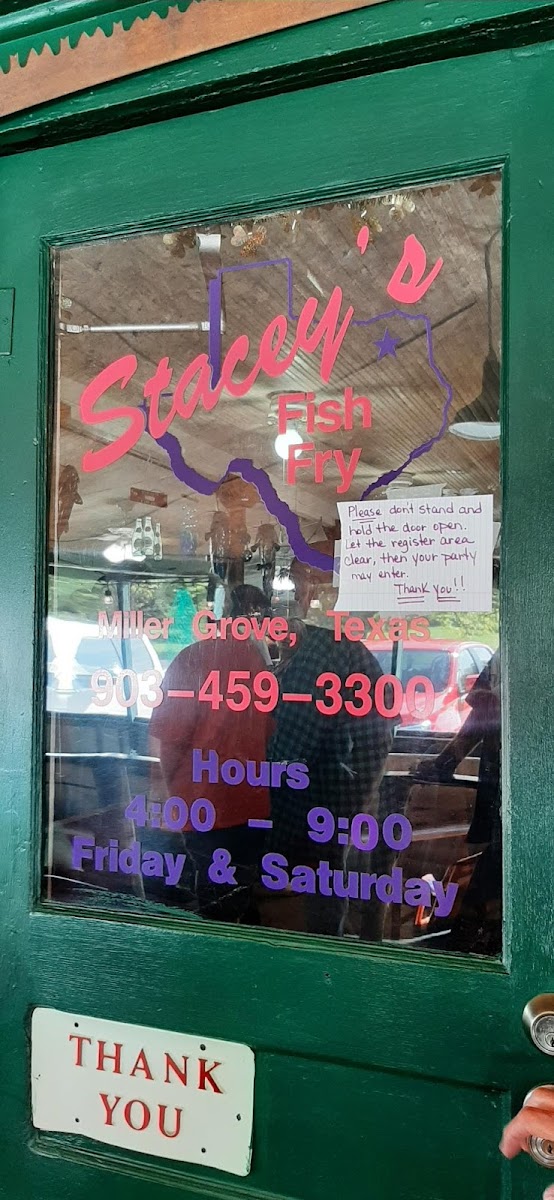 Stacey's
Fish
Fry
Please don't stand and
hold the door open.
Let the register area
clear, then your party
may enter.
Thank you!!
Miller Grove, Texas
903-459-3300
Hours
4:00 - 9:00
Friday & Saturday
THANK
YOU